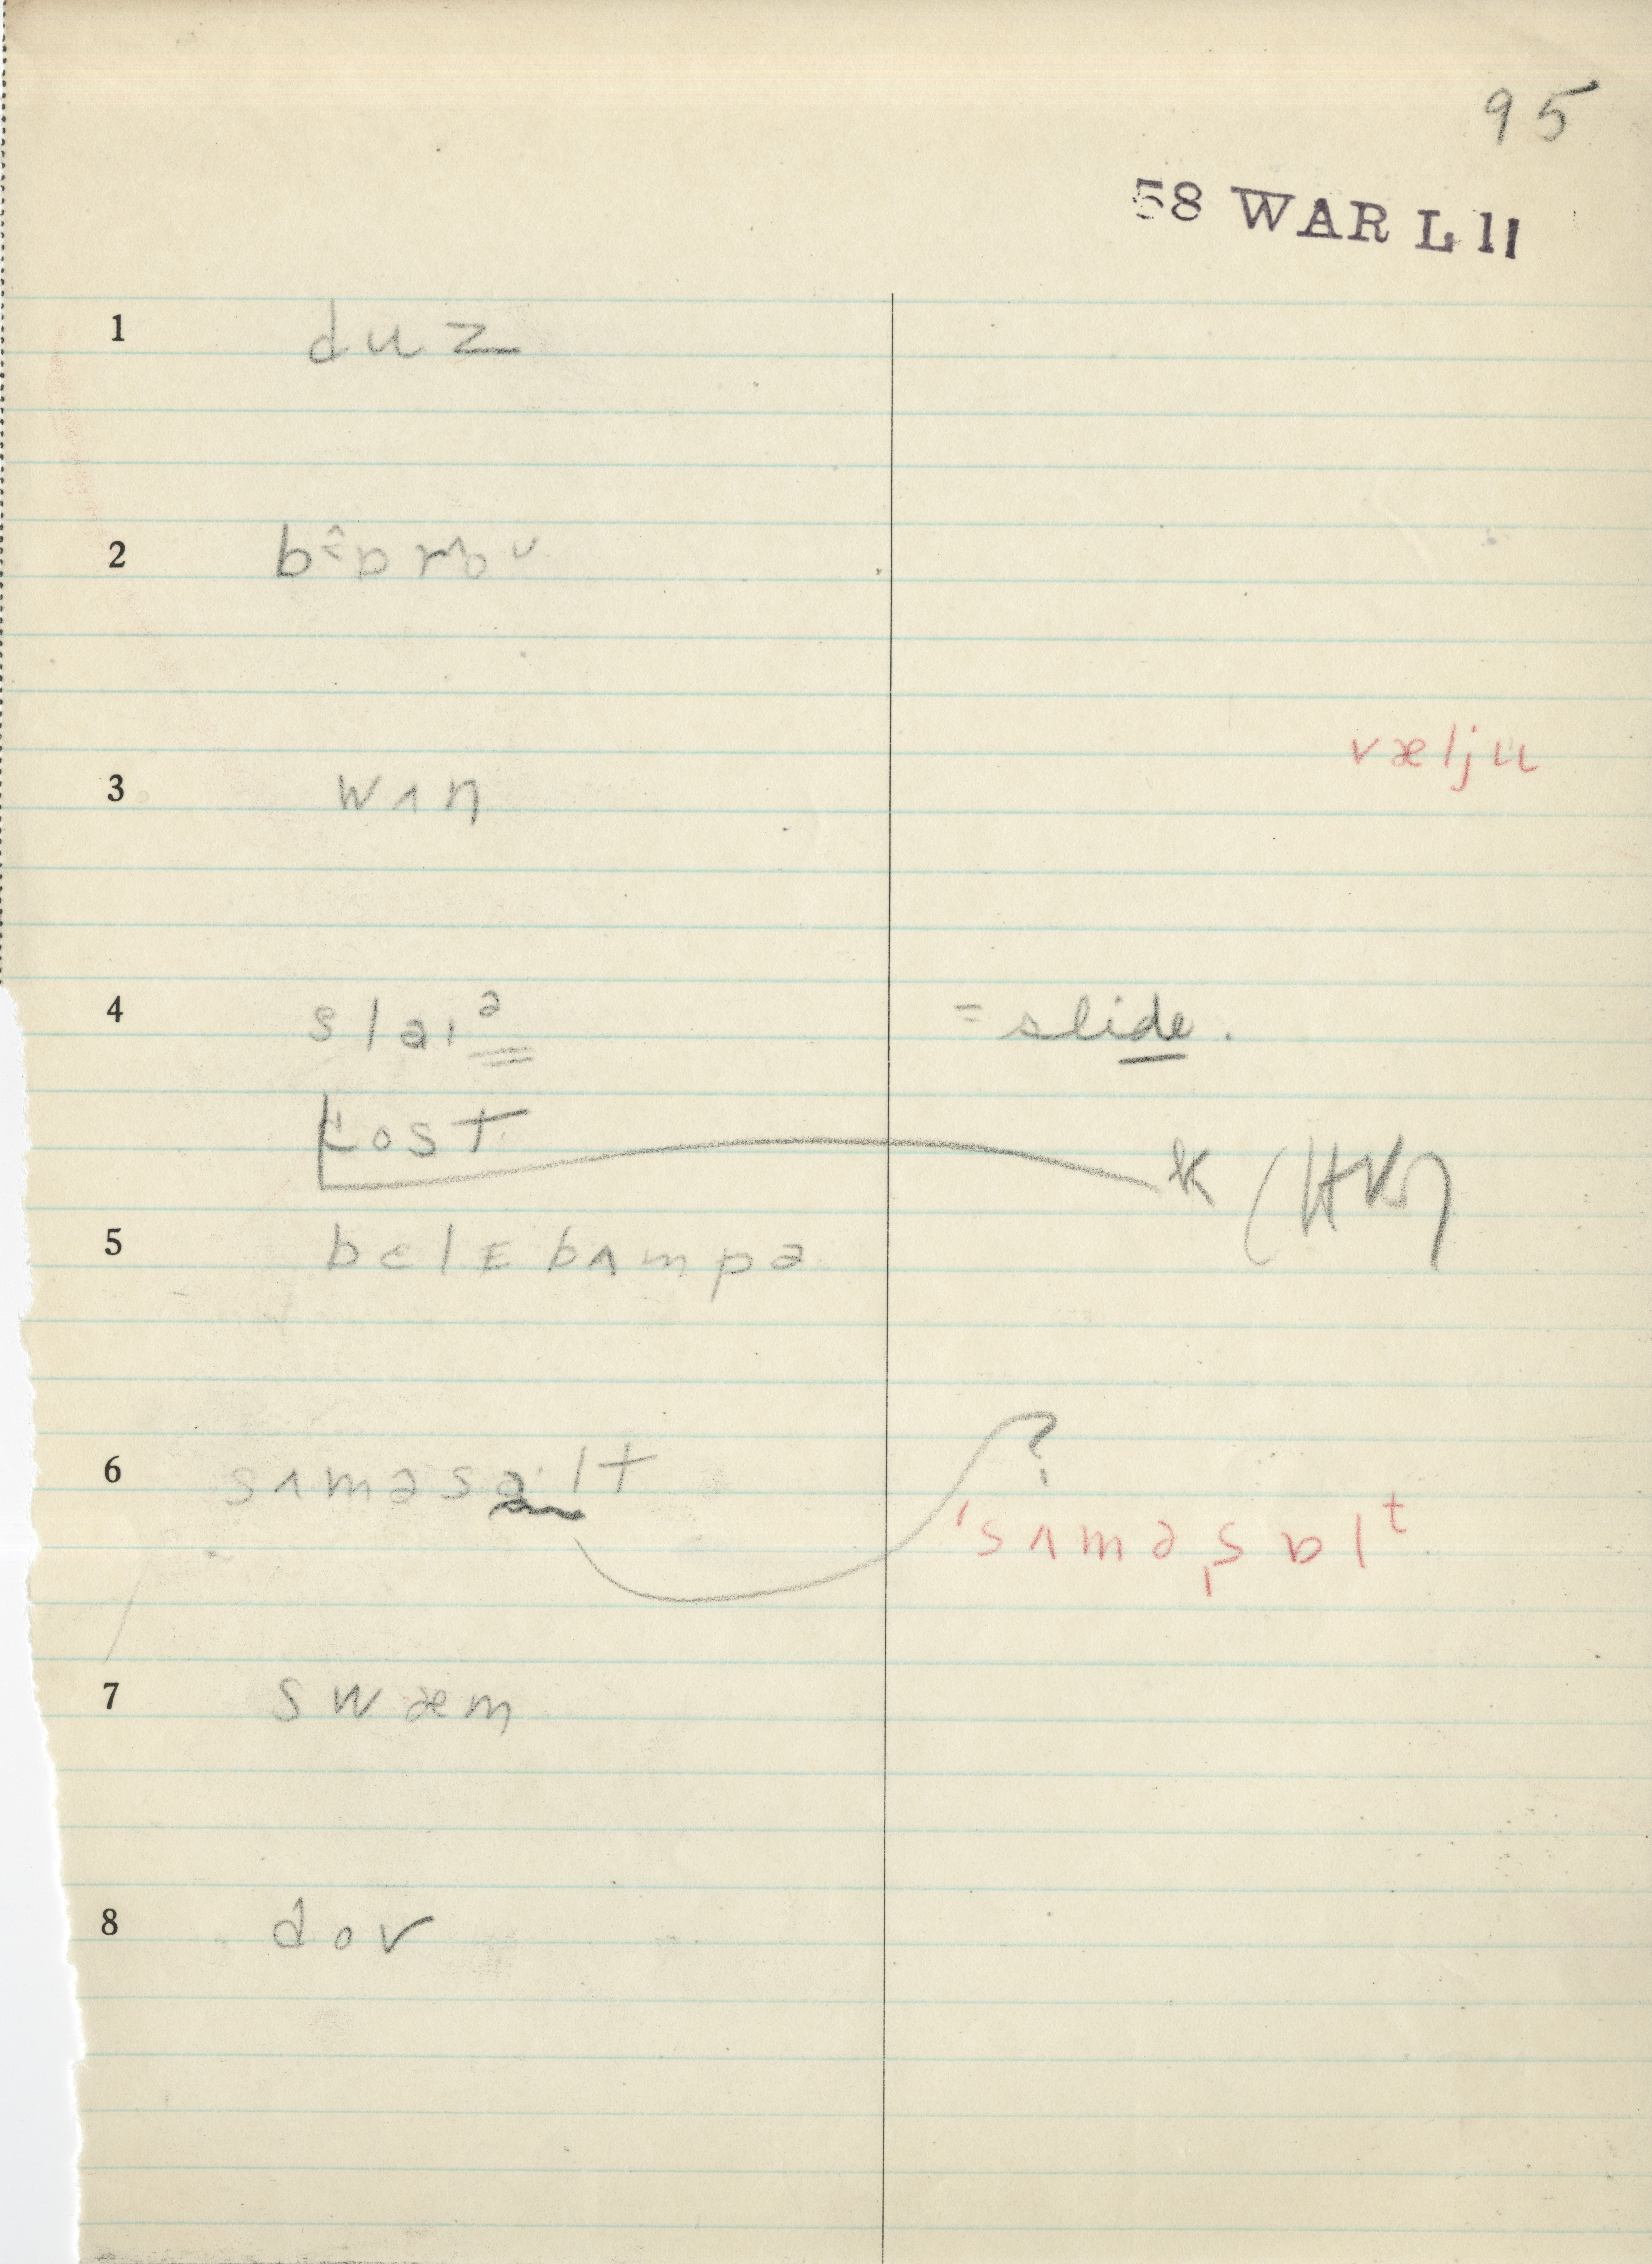 95
58 WAR L 11
1 duz
vælju
3 wʌn
4 slaiᵊ = slide.
kost
k (HK)
5 bɛlɛbʌmpə
?
6 sʌməsɑ·lt
ˈsʌməˌsɒlᵗ
7 swæm
8 dov